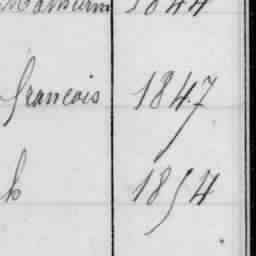 1844
francois 1847
1854